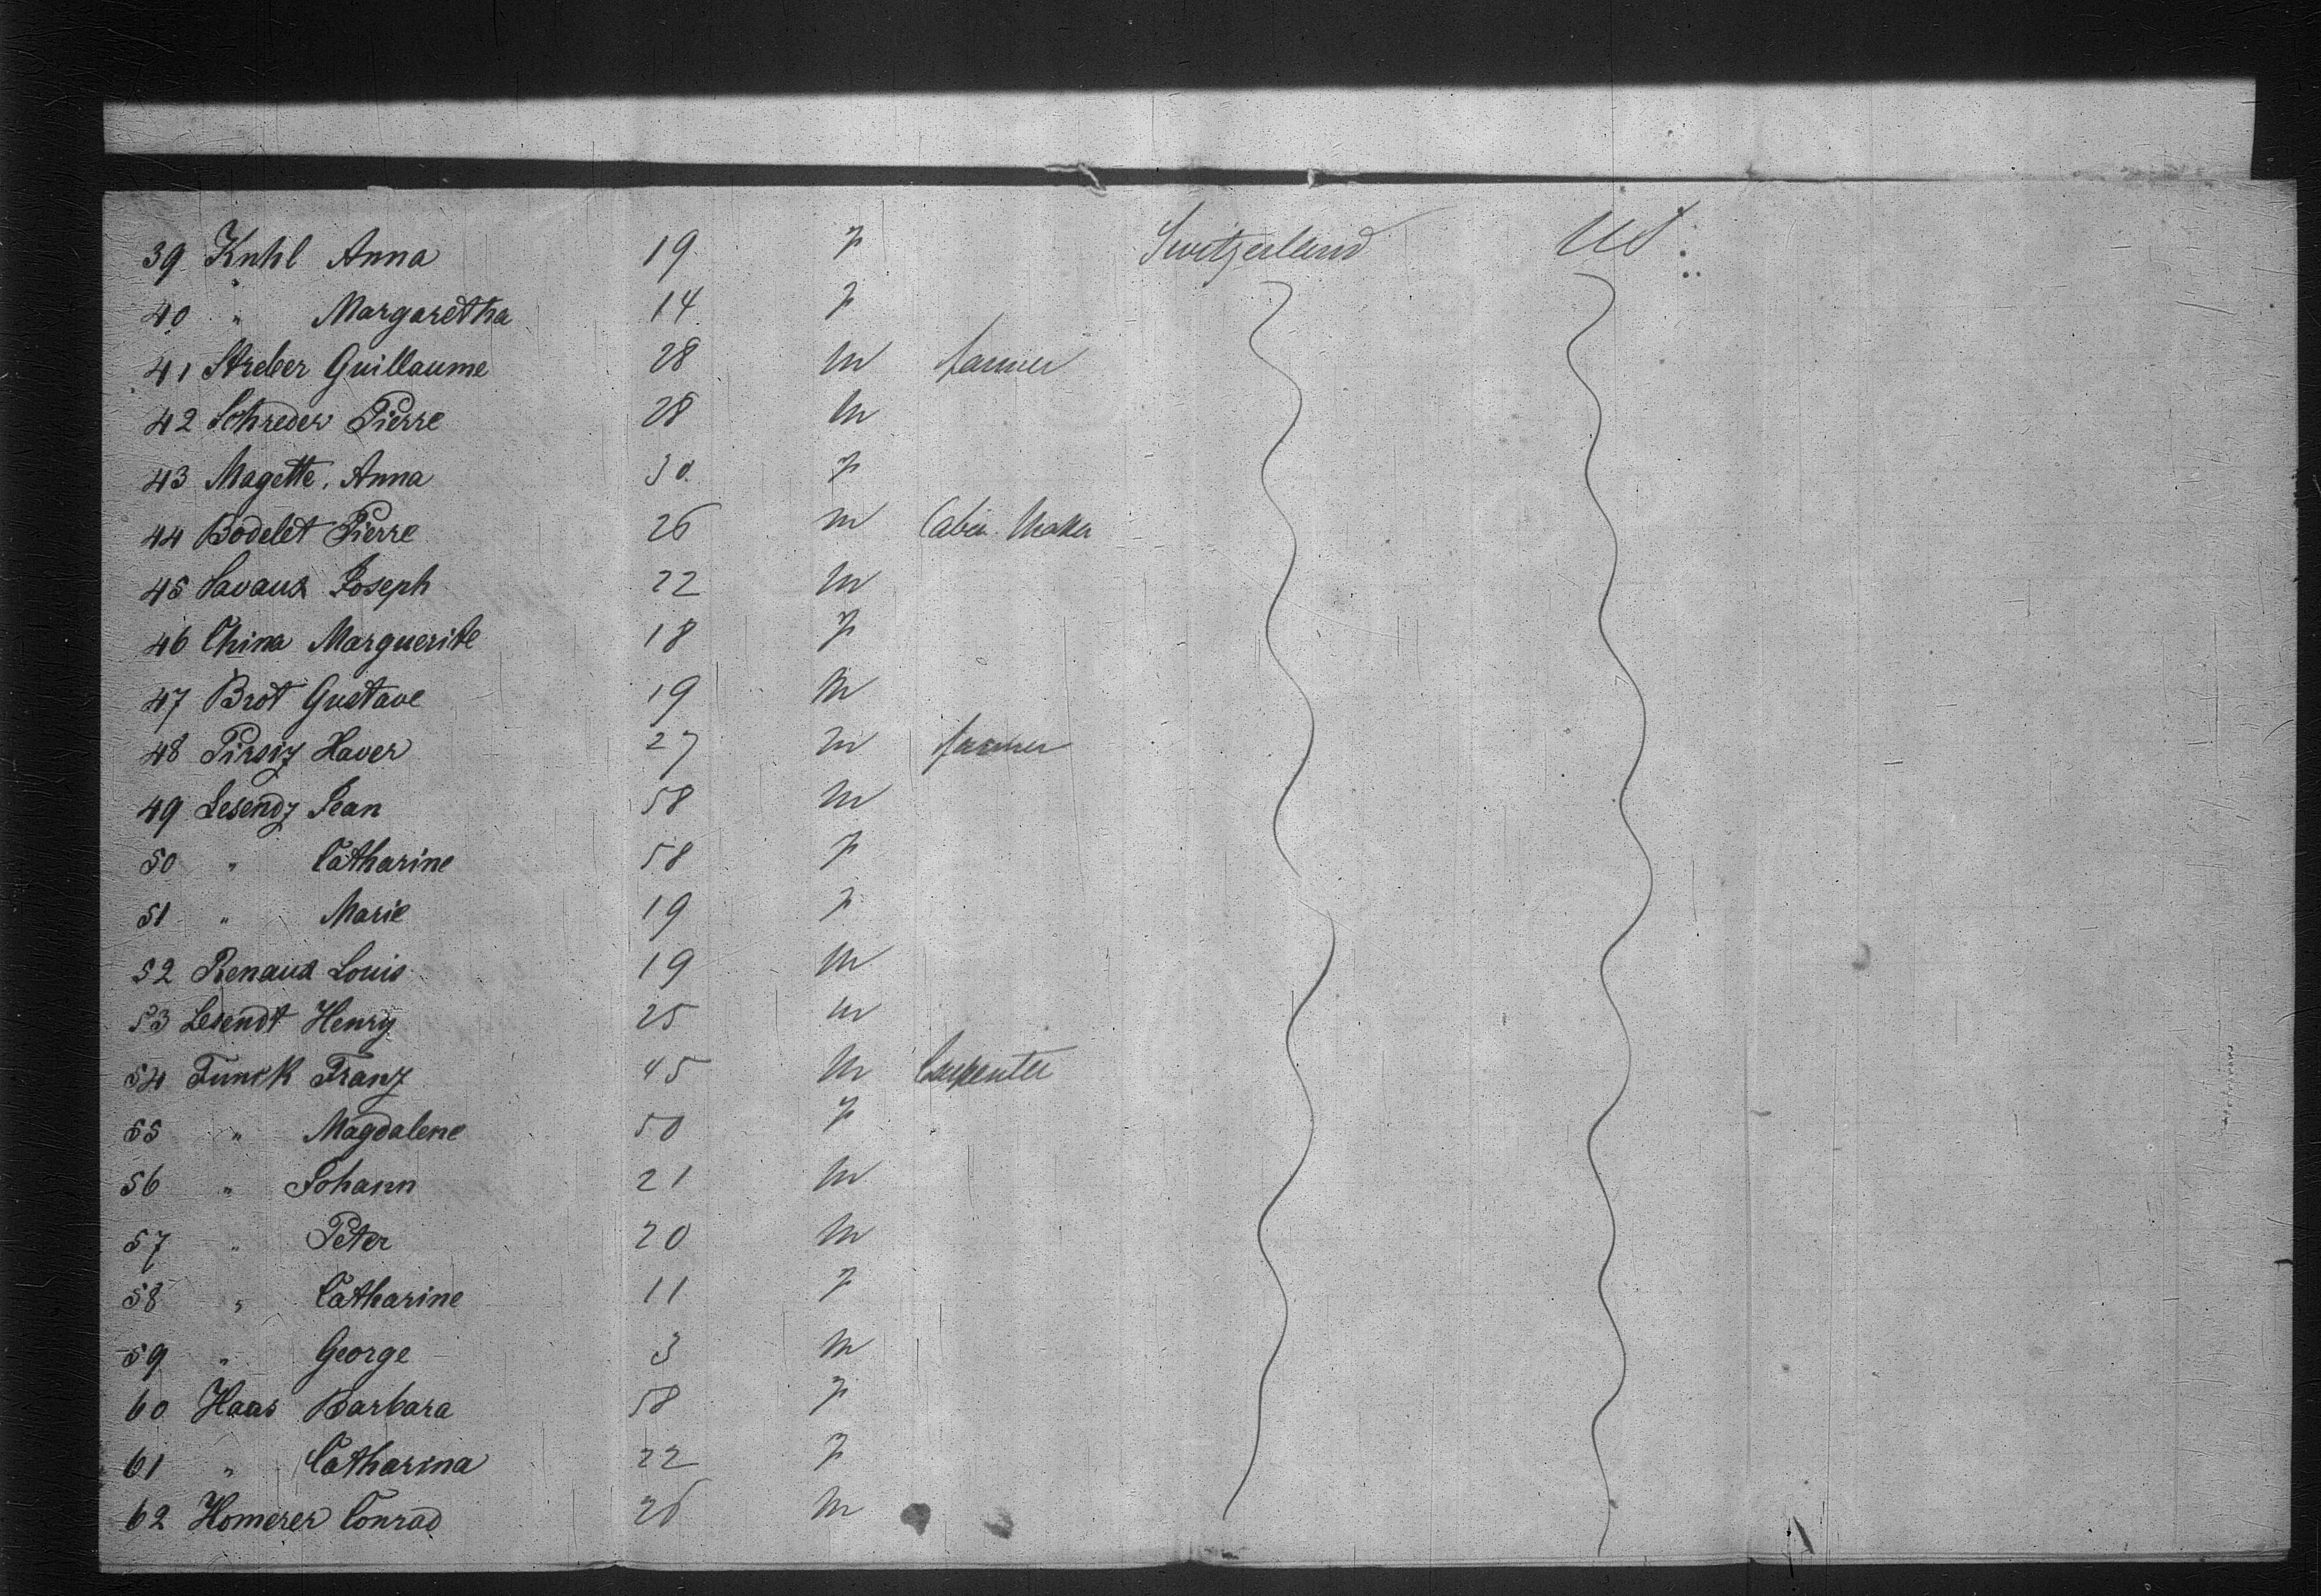 39 Kuhl Anna 19 f Switzerland US
40 " Margaretha 14 f
41 Streber Guillaume 28 m farmer
42 Schreder Pierre 28 m
43 Magette, Anna 30 f
44 Bodelet Pierre 26 m Cabin. Maker
45 Savaux Joseph 22 m
46 China Marguerite 18 f
47 Brot Gustave 19 m
48 Pirsiz Xaver 27 m farmer
49 Lesendz Jean 58 m
50 " Catharine 58 f
51 " Marie 19 f
52 Renaux Louis 19 m
53 Lesendt Henry 25 m
54 Funck Franz 45 m Carpenter
55 " Magdalene 50 f
56 " Johann 21 m
57 " Peter 20 m
58 " Catharine 11 f
59 " George 3 m
60 Haas Barbara 58 f
61 " Catharina 22 f
62 Homerer Conrad 26 m